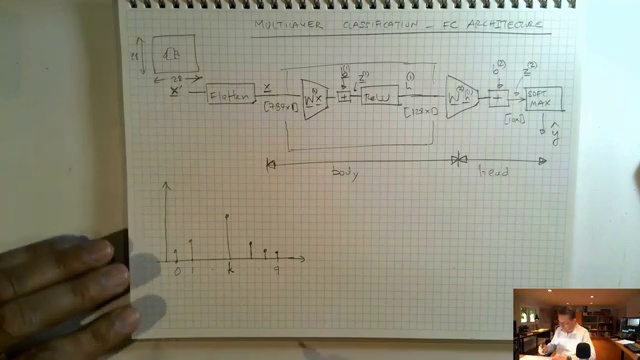 MULTILAYER CLASSIFICATION - FC ARCHITECTURE
28
28
X' Flatten x [784x1] W⁽¹⁾x b⁽¹⁾ + z⁽¹⁾ ReLU h⁽¹⁾ [128x1] W⁽²⁾h⁽¹⁾ b⁽²⁾ + z⁽²⁾ [10x1] SOFT MAX
ŷ
body head
0 1 k 9